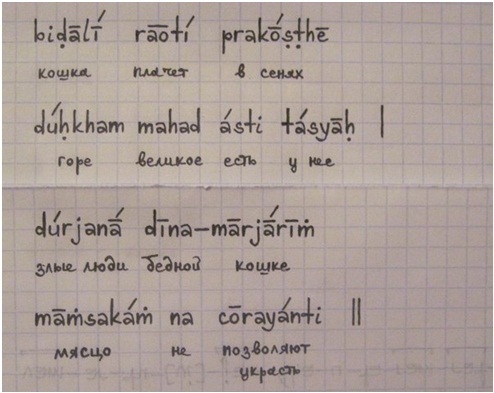 biḍālī́ rāōtí prakṓṣṭhē
кошка плачет в сенях
dúḥkham mahad ásti tásyāḥ |
горе великое есть у нее
dúrjanā́ dīna-mārjā́rīṁ
злые люди бедной кошке
māṁsakáṁ na cōrayánti ||
мясцо не позволяют
украсть